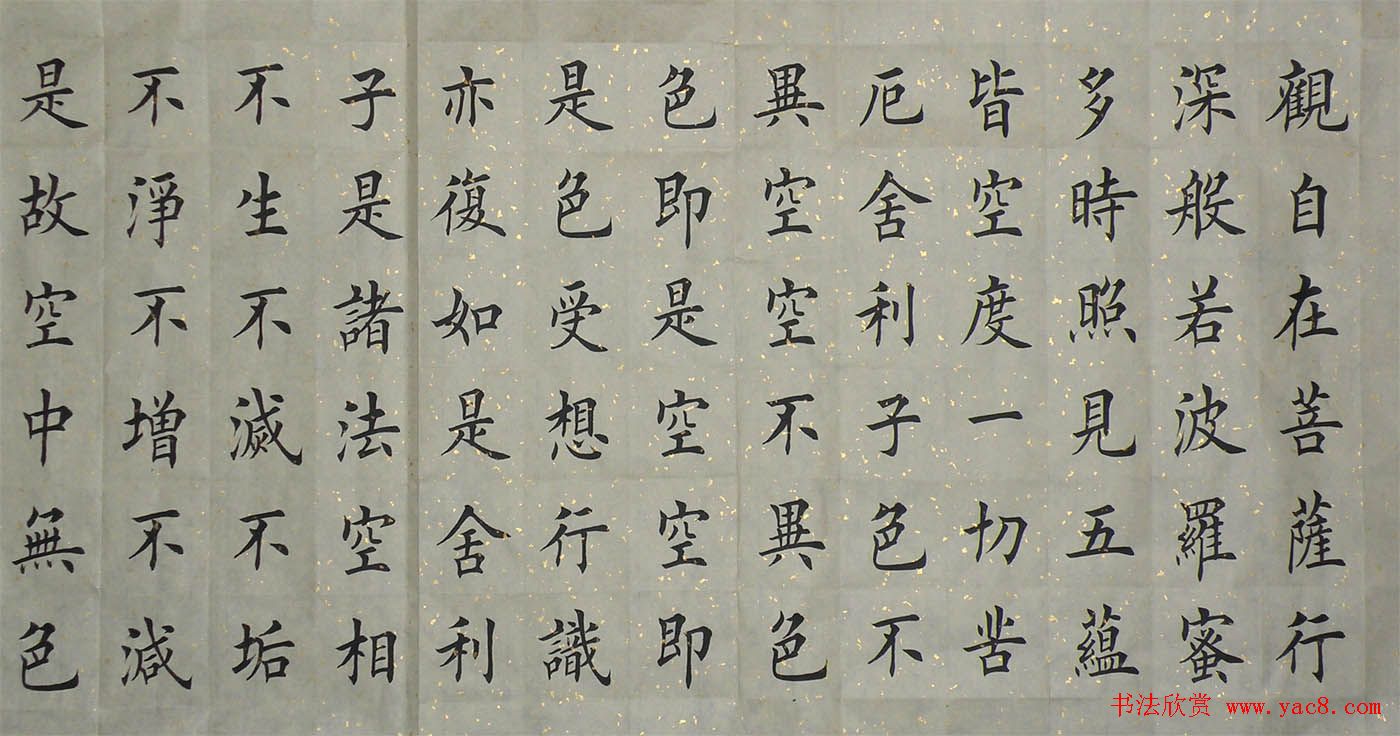 觀自在菩薩行
深般若波羅蜜
多時照見五蘊
皆空度一切苦
厄舍利子色不
異空空不異色
色即是空空即
是色受想行識
亦復如是舍利
子是諸法空相
不生不滅不垢
不淨不增不減
是故空中無色
书法欣赏 www.yac8.com